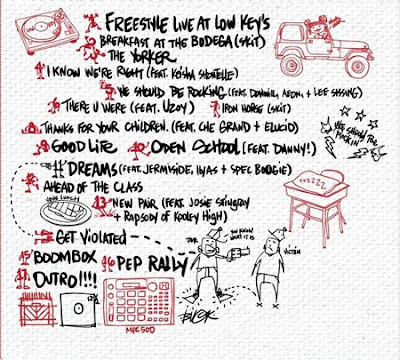 1 Freestyle Live at Low Key's
2 Breakfast at the Bodega (skit)
3 The Yorker
4 I know we're right (feat. Keisha Shontelle)
5 We should be rocking (feat.
6 There u were (feat. Uzoy)
7 Iron Horse (skit)
8 Thanks for your children. (feat. Che Grand + Elucid)
9 Good Life
10 Open School (feat. Danny!)
11 Dreams (feat. Jermiside, Ilyas + Spec Boogie)
12 Ahead of the class
13 New Pair (feat. Josie Stingray
+ Rapsody of Kooley High)
14 Get Violated
15 Boombox
16 Pep Rally
17 Outro!!!!
We should be
rockin'
zzzzz
Lunch
You know
what it is
Victim
MPC 500